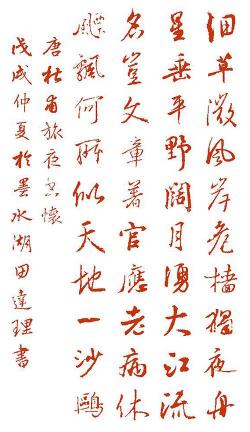 細草微風岸危檣獨夜舟
星垂平野闊月湧大江流
名豈文章著官應老病休
飄飄何所似天地一沙鷗
唐杜甫旅夜書懷
戊戌仲夏於墨水湖田達理書